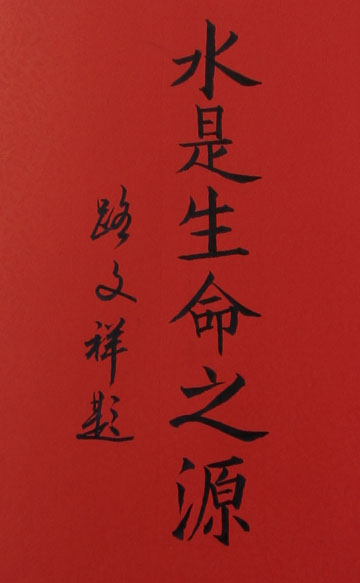 水是生命之源
路文祥题